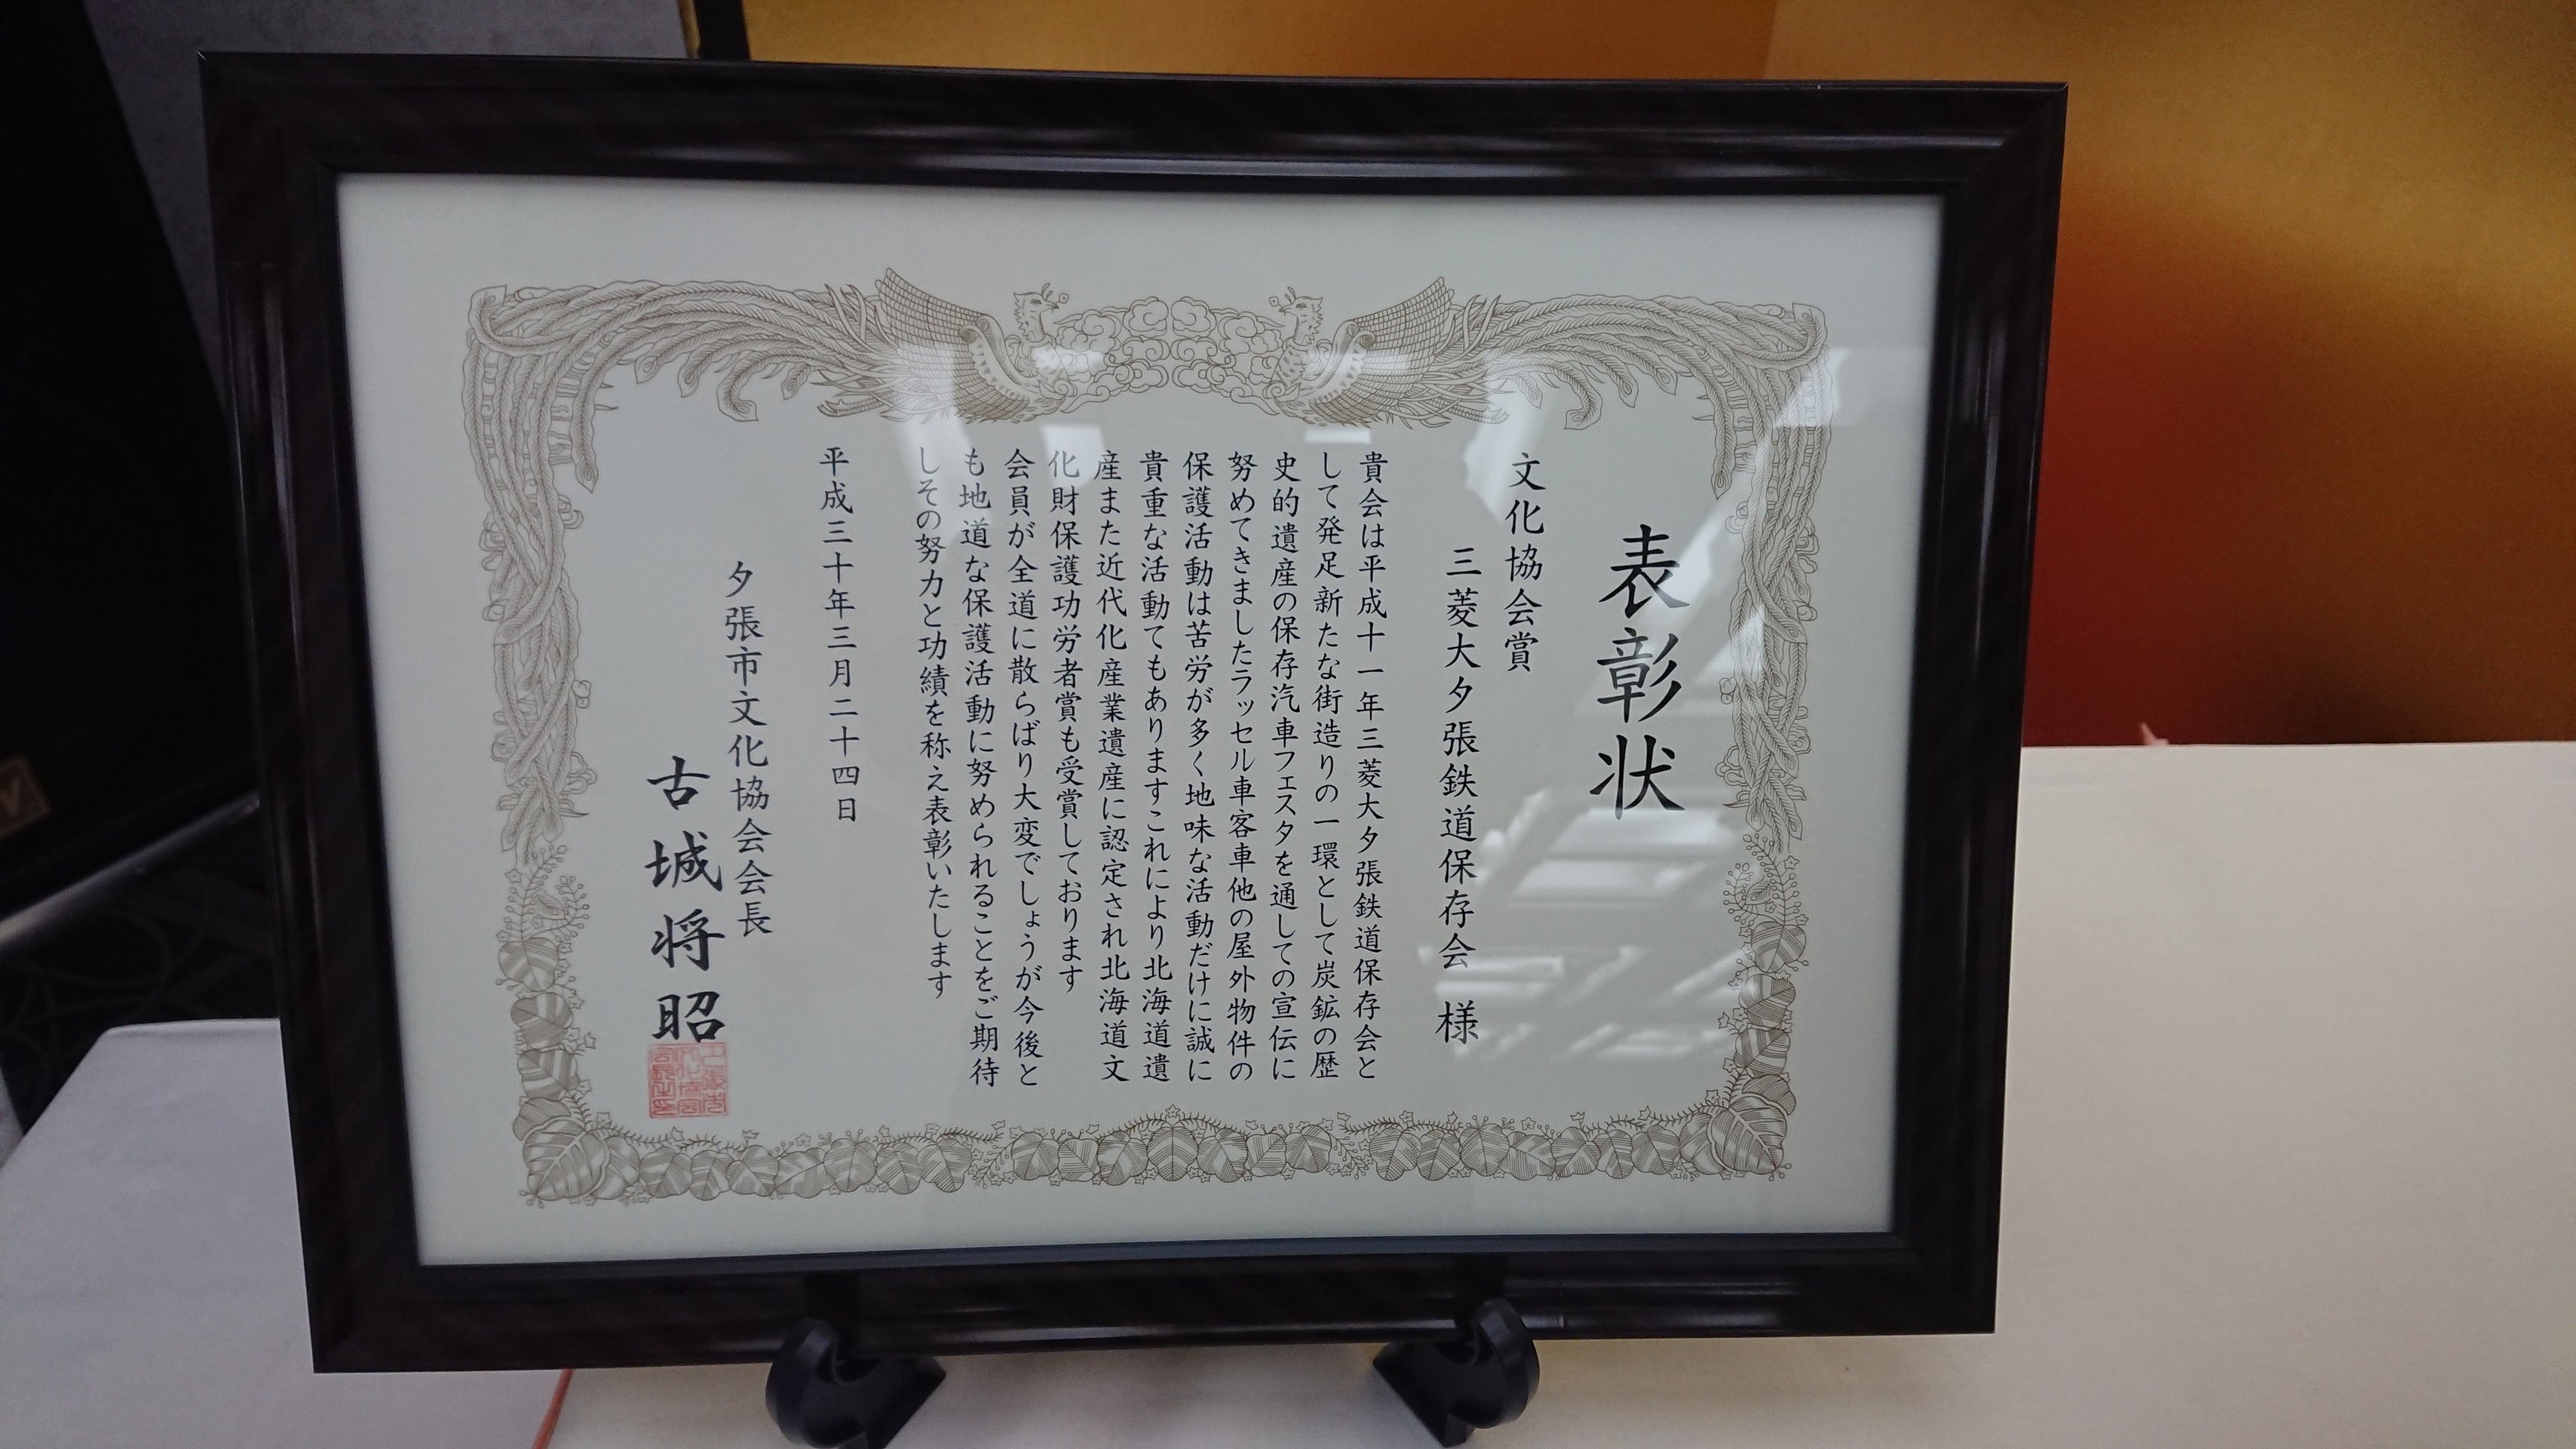 表彰状
文化協会賞
三菱大夕張鉄道保存会 様
貴会は平成十一年三菱大夕張鉄道保存会と
して発足新たな街造りの一環として炭鉱の歴
史的遺産の保存汽車フェスタを通しての宣伝に
努めてきましたラッセル車客車他の屋外物件の
保護活動は苦労が多く地味な活動だけに誠に
貴重な活動てもありますこれにより北海道遺
産また近代化産業遺産に認定され北海道文
化財保護功労者賞も受賞しております
会員が全道に散らばり大変でしょうが今後と
も地道な保護活動に努められることをご期待
しその努力と功績を称え表彰いたします
平成三十年三月二十四日
夕張市文化協会会長
古城将昭